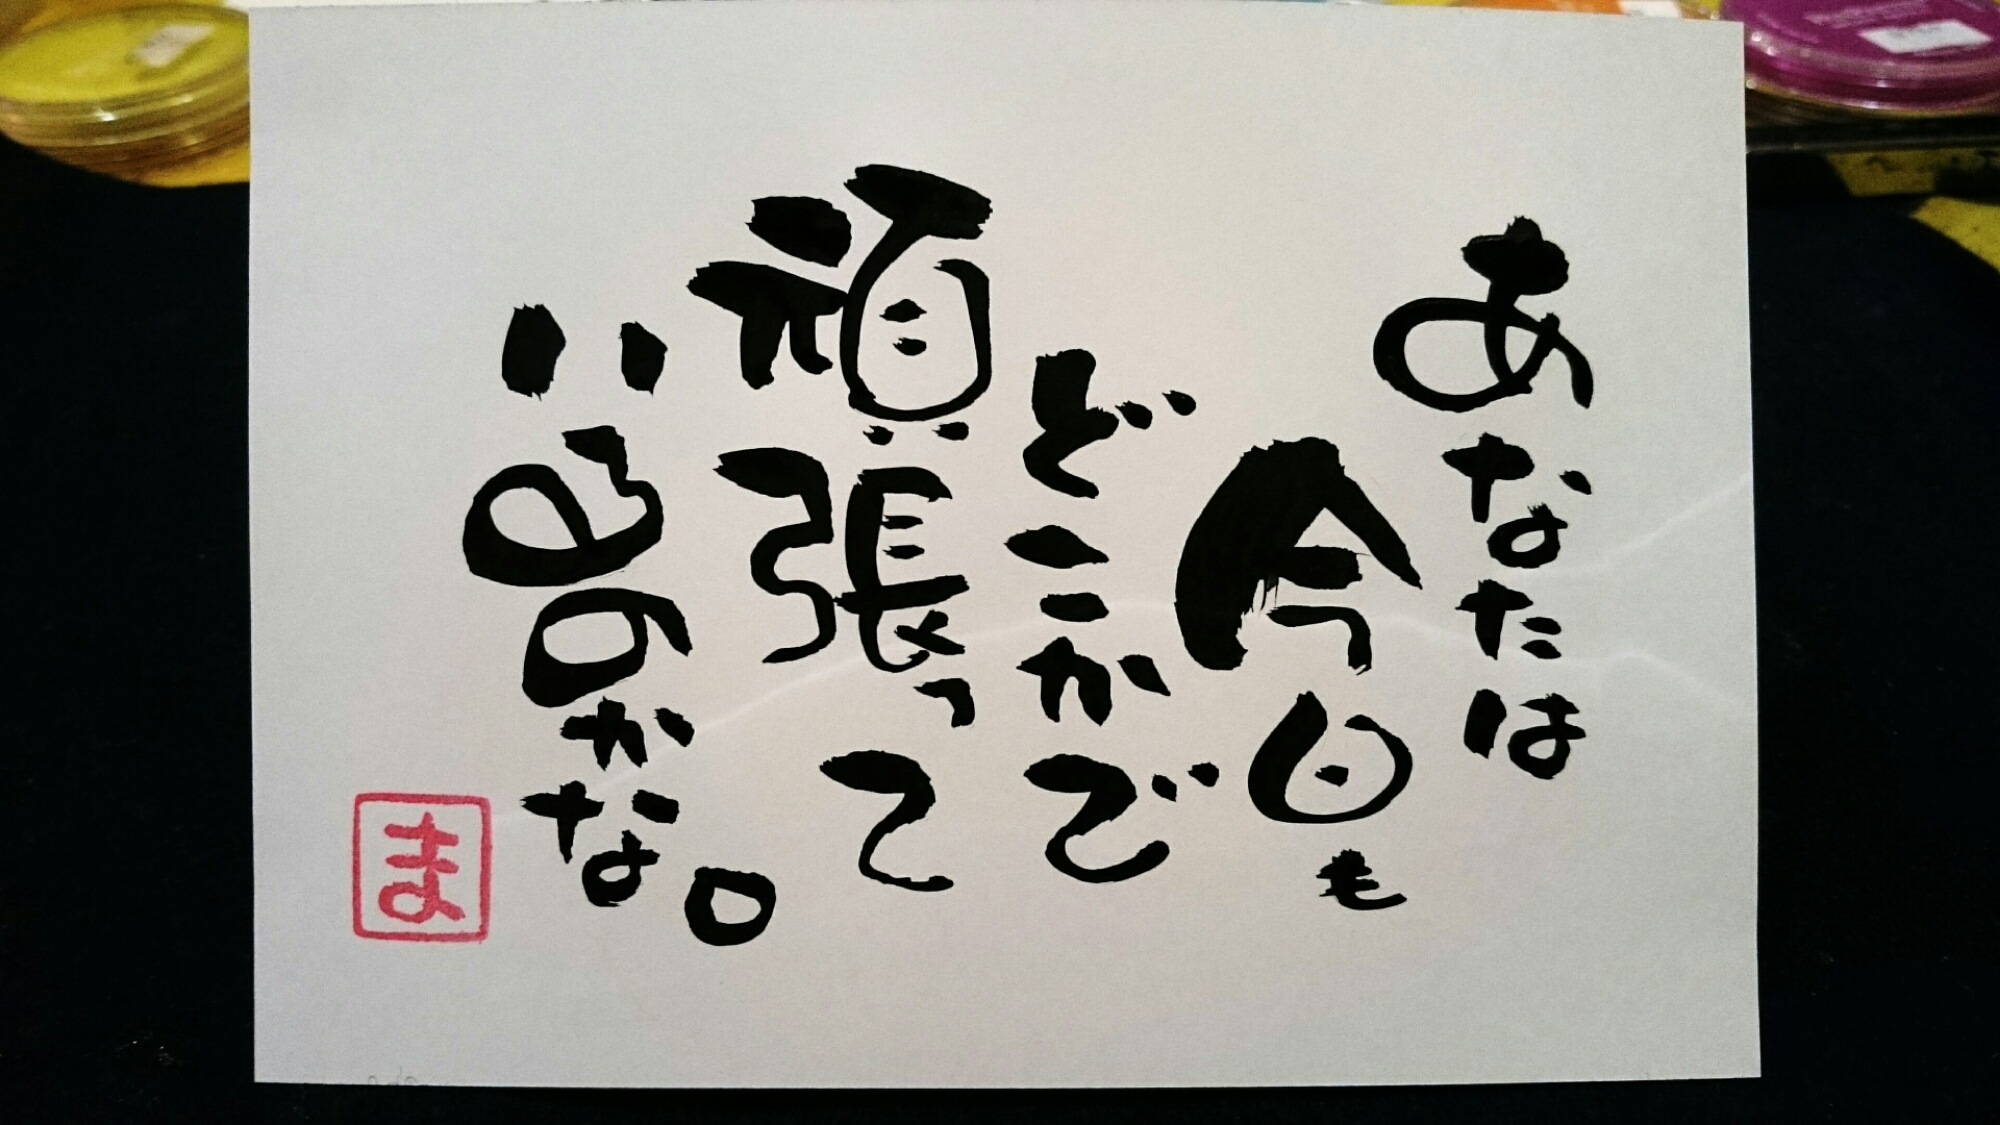 あなたは
今日も
どこかで
頑張って
いるのかな。
ま